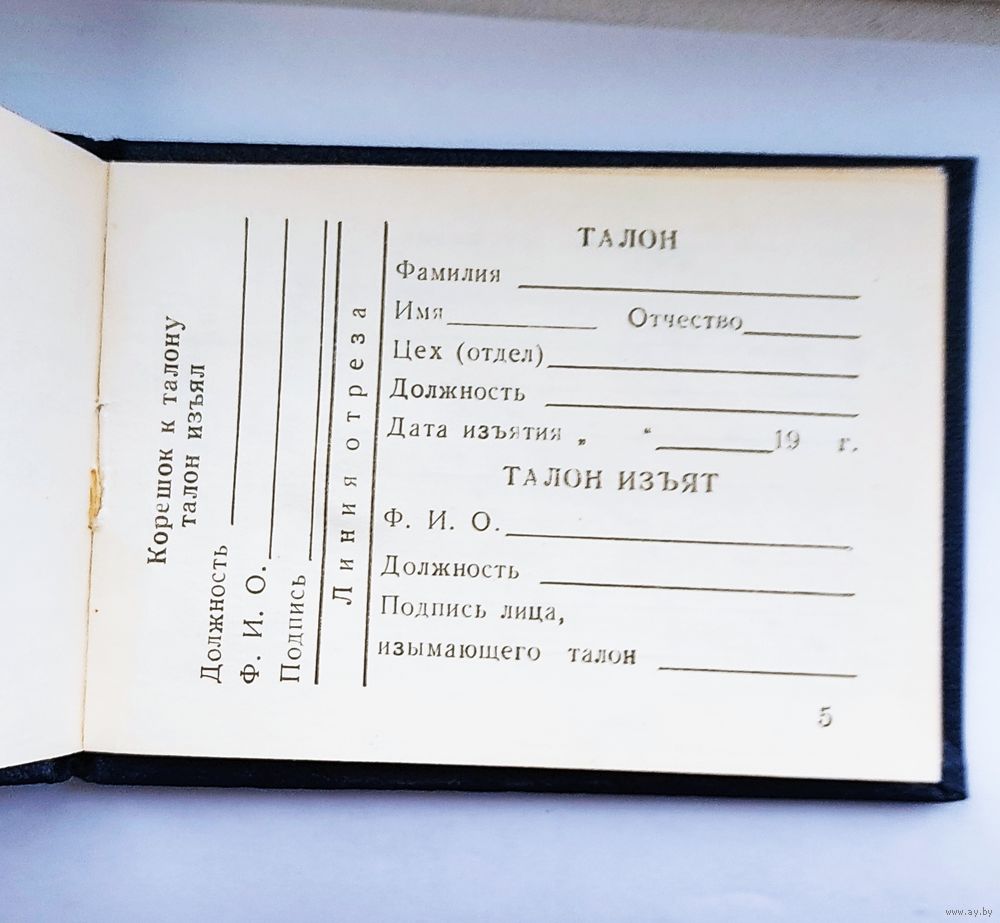 Корешок к талону
талон изъял
Должность ____________
Ф. И. О. ____________
Подпись ____________
Линия отреза
ТАЛОН
Фамилия ____________
Имя ____________ Отчество ____________
Цех (отдел) ____________
Должность ____________
Дата изъятия „ “ ____________ 19 г.
ТАЛОН ИЗЪЯТ
Ф. И. О. ____________
Должность ____________
Подпись лица,
изымающего талон ____________
5
www.ay.by